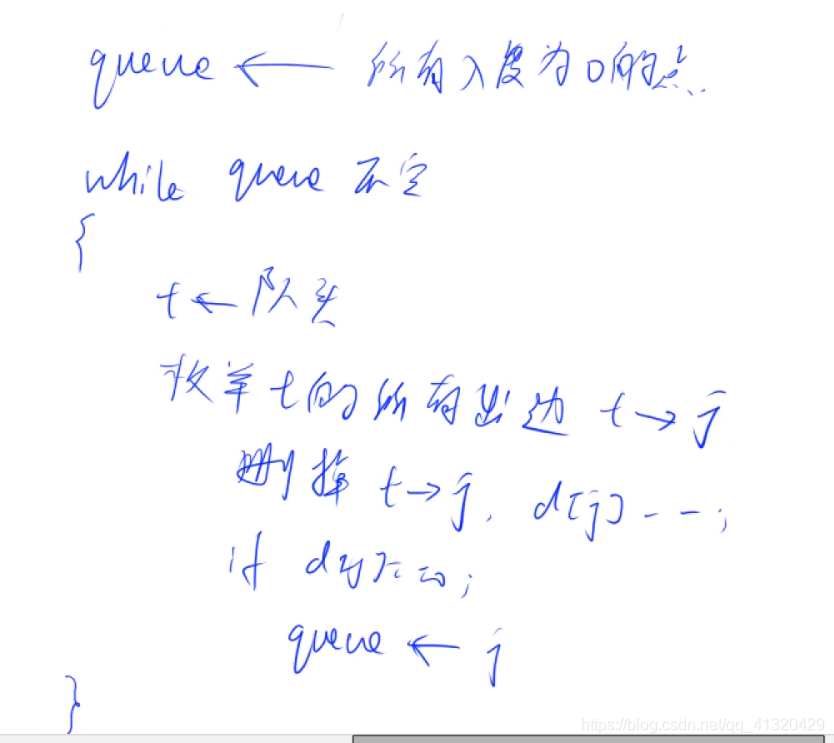 queue ← 所有入度为0的点
while queue 不空
{
t ← 队头
枚举 t 的所有出边 t → j
删掉 t → j, d[j]--;
if d[j]==0;
queue ← j
}
https://blog.csdn.net/qq_41320429